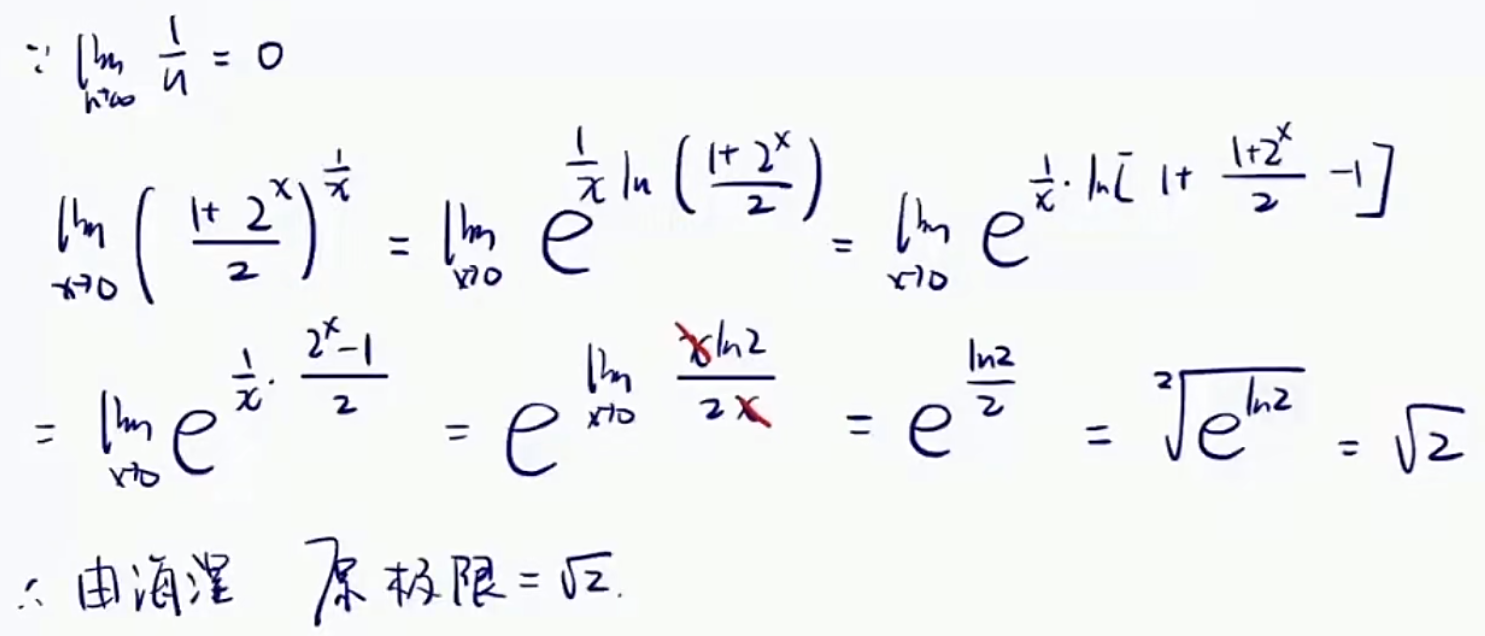 ∵ lim_{n→∞} 1/n = 0
lim_{x→0} ( (1+2^x)/2 )^{1/x} = lim_{x→0} e^{1/x ln( (1+2^x)/2 )} = lim_{x→0} e^{1/x · ln[ 1+ (1+2^x)/2 -1 ]}
= lim_{x→0} e^{1/x · (2^x-1)/2} = e^{lim_{x→0} (x ln2)/(2x)} = e^{ln2/2} = ²√(e^{ln2}) = √2
∴ 由海涅 原极限 = √2.